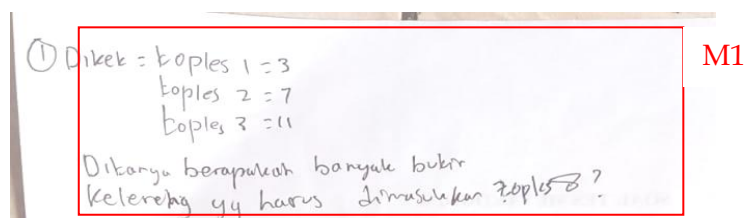 ① Diket = toples 1 = 3
toples 2 = 7
toples 3 = 11
Ditanya berapakah banyak butir
kelereng yg harus dimasukkan toples 8?
M1